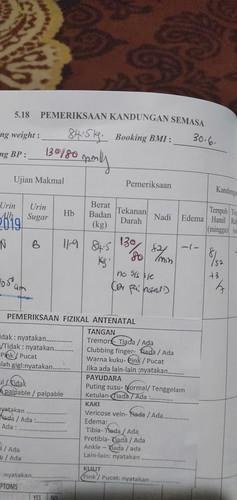 5.18 PEMERIKSAAN KANDUNGAN SEMASA
ng weight : 84.5 kg. Booking BMI : 30.6.
ng BP : 130/80 mmHg
Ujian Makmal Pemeriksaan Kandungan
Urin Alb Urin Sugar Hb Berat Badan (kg) Tekanan Darah Nadi Edema Tempoh Hamil (minggu)
2019
N 11.9 84.5 kg 130/80 82/min 8/52 +3/7
PEMERIKSAAN FIZIKAL ANTENATAL
TANGAN
idak : nyatakan Tremor: Tiada / Ada
/Tidak : nyatakan Clubbing finger: Tiada / Ada
Pink / Pucat Warna kuku: Pink / Pucat
lah gigi:nyatakan Jika ada lain-lain :nyatakan
PAYUDARA
/ Tidak Puting susu: Normal/ Tenggelam
palpable / palpable Ketulan :Tiada / Ada
nyatakan KAKI
/ Ada : Vericose vein- Tiada / Ada
Ada : Edema:
Tibia- Tiada / Ada
/ Ada Pretibia- Tiada / Ada
/ Ada Ankle – Tiada / Ada
Lain-lain: nyatakan
KULIT
nyatakan Pink / Pucat: nyatakan
PTOMS YES NO